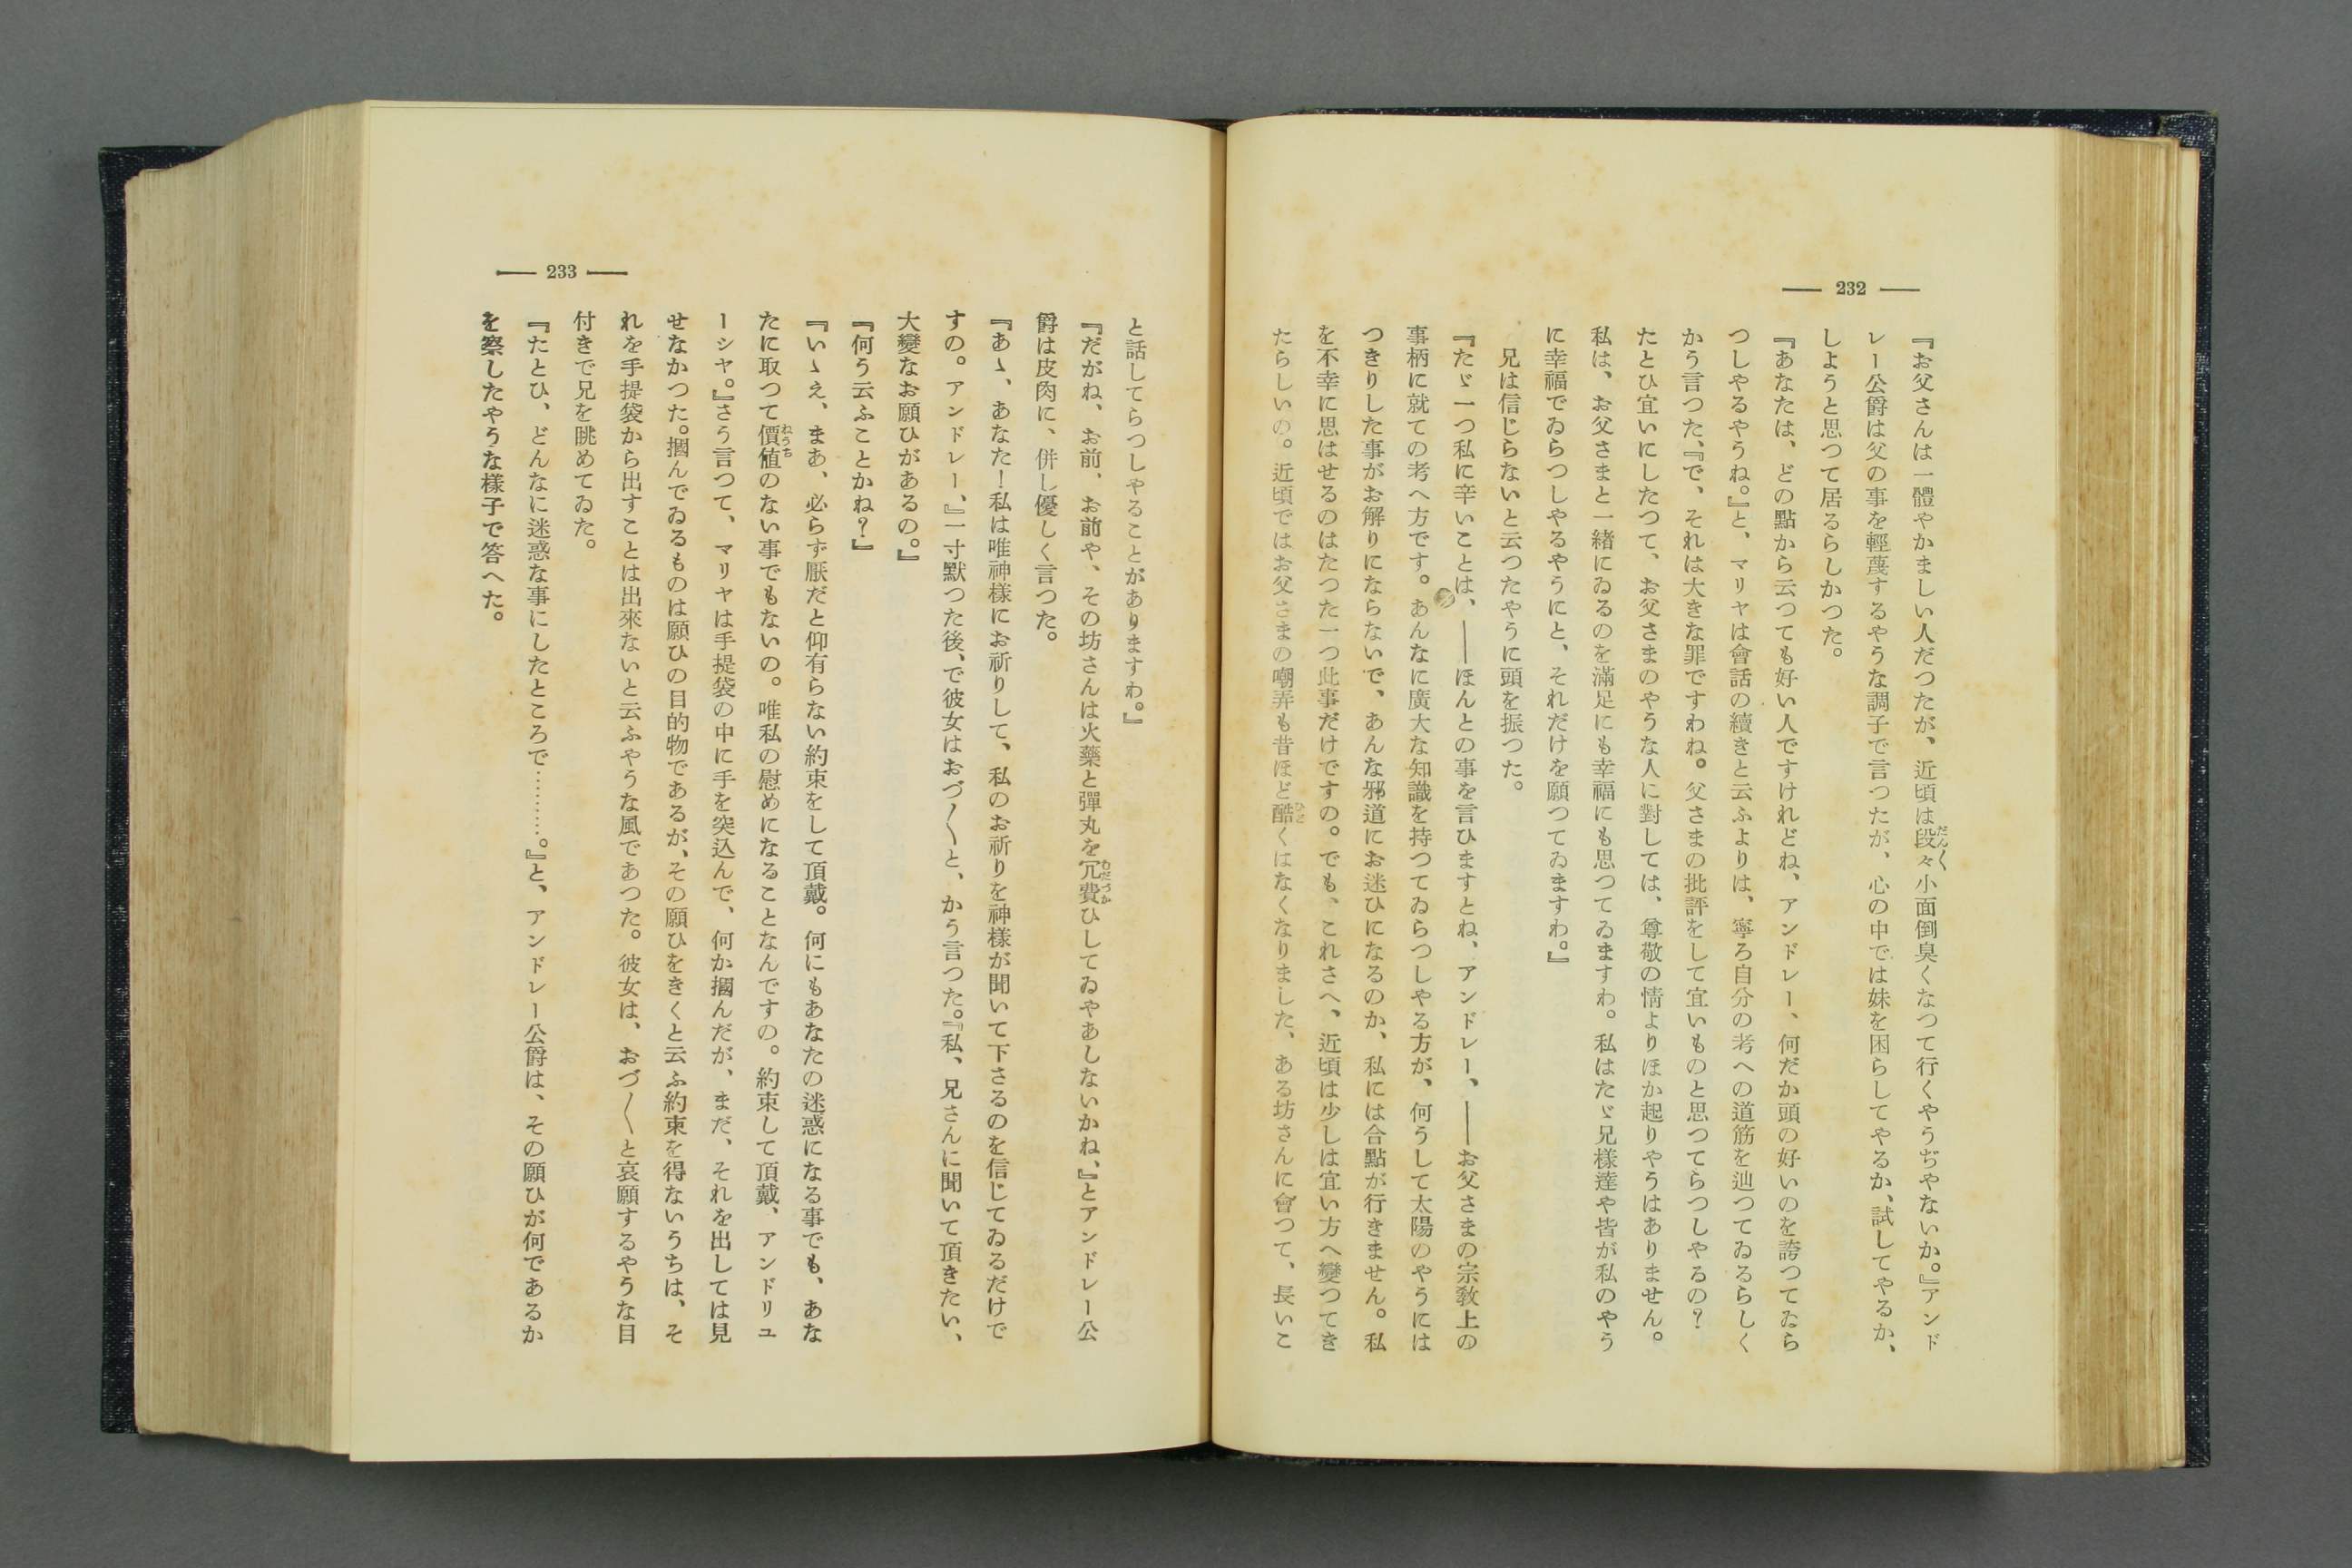 232
『お父さんは一體やかましい人だつたが、近頃は段々小面倒臭くなつて行くやうぢやないか。』アンド
レー公爵は父の事を輕蔑するやうな調子で言つたが、心の中では妹を困らしてやるか、試してやるか、
しようと思つて居るらしかつた。
『あなたは、どの點から云つても好い人ですけれどね、アンドレー、何だか頭の好いのを誇つてゐら
つしやるやうね。』と、マリヤは會話の續きと云ふよりは、寧ろ自分の考への道筋を辿つてゐるらしく
かう言つた、『で、それは大きな罪ですわね。父さまの批評をして宜いものと思つてらつしやるの？
たとひ宜いにしたつて、お父さまのやうな人に對しては、尊敬の情よりほか起りやうはありません。
私は、お父さまと一緒にゐるのを滿足にも幸福にも思つてゐますわ。私はたゞ兄樣達や皆が私のやう
に幸福でゐらつしやるやうにと、それだけを願つてゐますわ。』
兄は信じらないと云つたやうに頭を振つた。
『たゞ一つ私に辛いことは、――ほんとの事を言ひますとね、アンドレー、――お父さまの宗敎上の
事柄に就ての考へ方です。あんなに廣大な知識を持つてゐらつしやる方が、何うして太陽のやうには
つきりした事がお解りにならないで、あんな邪道にお迷ひになるのか、私には合點が行きません。私
を不幸に思はせるのはたつた一つ此事だけですの。でも、これさへ、近頃は少しは宜い方へ變つてき
たらしいの。近頃ではお父さまの嘲弄も昔ほど酷くはなくなりました、ある坊さんに會つて、長いこ
233
と話してらつしやることがありますわ。』
『だがね、お前、お前や、その坊さんは火藥と彈丸を冗費ひしてゐやあしないかね、』とアンドレー公
爵は皮肉に、併し優しく言つた。
『あゝ、あなた！私は唯神樣にお祈りして、私のお祈りを神樣が聞いて下さるのを信じてゐるだけで
すの。アンドレー、』一寸默つた後、で彼女はおづ〱と、かう言つた。『私、兄さんに聞いて頂きたい、
大變なお願ひがあるの。』
『何う云ふことかね？』
『いゝえ、まあ、必らず厭だと仰有らない約束をして頂戴。何にもあなたの迷惑になる事でも、あな
たに取つて價値のない事でもないの。唯私の慰めになることなんですの。約束して頂戴、アンドリユ
ーシヤ。』さう言つて、マリヤは手提袋の中に手を突込んで、何か摑んだが、まだ、それを出しては見
せなかつた。摑んでゐるものは願ひの目的物であるが、その願ひをきくと云ふ約束を得ないうちは、そ
れを手提袋から出すことは出來ないと云ふやうな風であつた。彼女は、おづ〱と哀願するやうな目
付きで兄を眺めてゐた。
『たとひ、どんなに迷惑な事にしたところで………。』と、アンドレー公爵は、その願ひが何であるか
を察したやうな樣子で答へた。